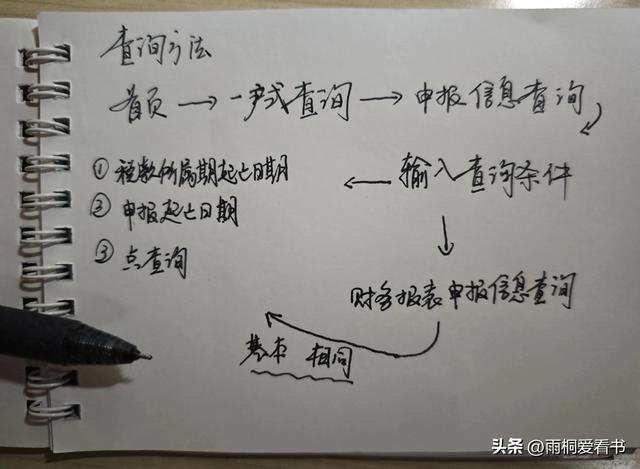 查询方法
首页 → 一户式查询 → 申报信息查询
输入查询条件
① 税款所属期起止日期
② 申报起止日期
③ 点查询
财务报表申报信息查询
基本 相同
头条 @雨桐爱看书